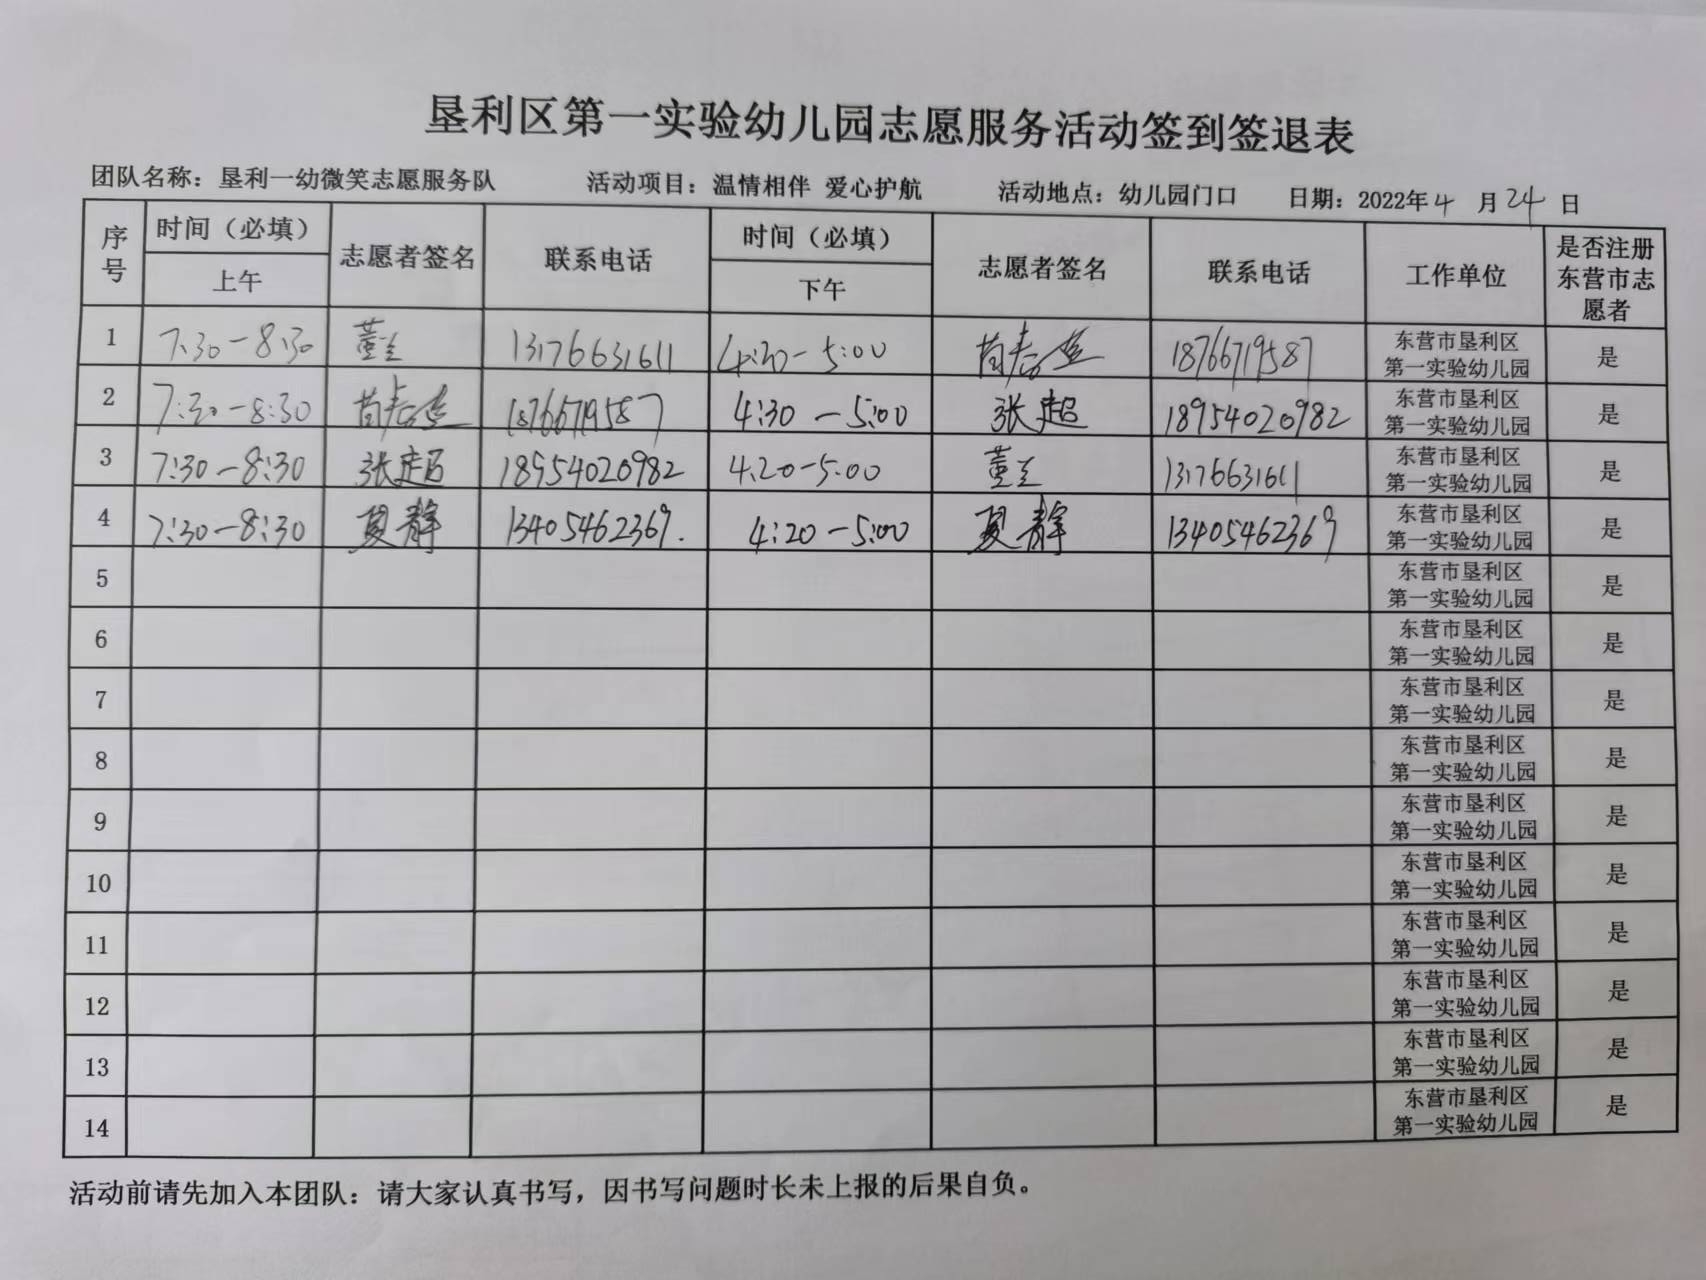 垦利区第一实验幼儿园志愿服务活动签到签退表
团队名称：垦利一幼微笑志愿服务队 活动项目：温情相伴 爱心护航 活动地点：幼儿园门口 日期：2022年4月24日
序号 时间（必填） 志愿者签名 联系电话 时间（必填） 志愿者签名 联系电话 工作单位 是否注册东营市志愿者
上午 下午
1 7:30-8:30 13176631611 4:20-5:00 18766719587 东营市垦利区第一实验幼儿园 是
2 7:30-8:30 18766719587 4:30-5:00 张超 18954020982 东营市垦利区第一实验幼儿园 是
3 7:30-8:30 张超 18954020982 4:20-5:00 13176631611 东营市垦利区第一实验幼儿园 是
4 7:30-8:30 夏静 13405462369. 4:20-5:00 夏静 13405462369 东营市垦利区第一实验幼儿园 是
5 东营市垦利区第一实验幼儿园 是
6 东营市垦利区第一实验幼儿园 是
7 东营市垦利区第一实验幼儿园 是
8 东营市垦利区第一实验幼儿园 是
9 东营市垦利区第一实验幼儿园 是
10 东营市垦利区第一实验幼儿园 是
11 东营市垦利区第一实验幼儿园 是
12 东营市垦利区第一实验幼儿园 是
13 东营市垦利区第一实验幼儿园 是
14 东营市垦利区第一实验幼儿园 是
活动前请先加入本团队：请大家认真书写，因书写问题时长未上报的后果自负。